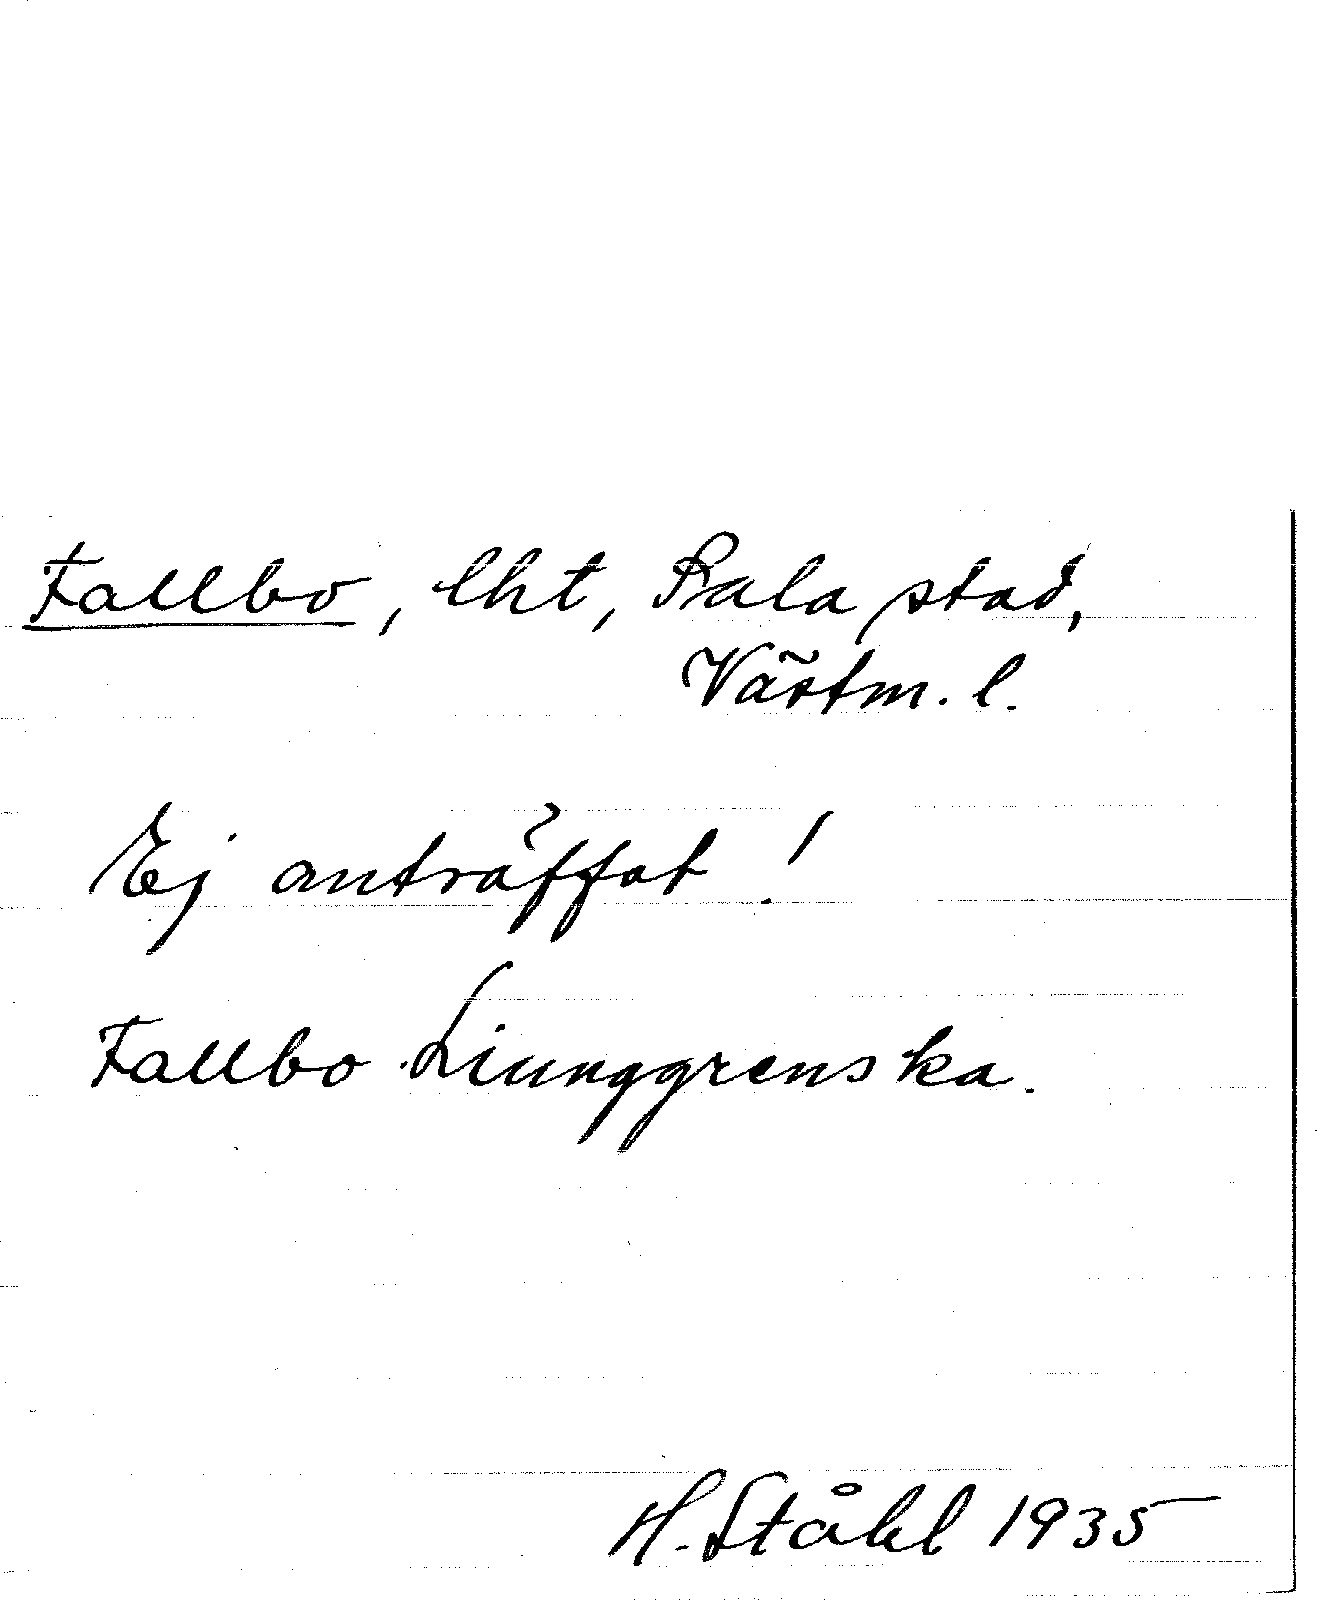 Fallbo, lht, Sala stad,
Västm. l.
Ej anträffat!
Fallbo Liunggrenska.
H. Ståhl 1935